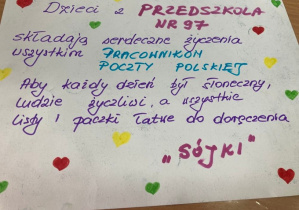 Dzieci z PRZEDSZKOLA
NR 97
składają serdeczne życzenia
wszystkim PRACOWNIKOM
POCZTY POLSKIEJ
Aby każdy dzień był słoneczny,
ludzie życzliwi, a wszystkie
listy i paczki łatwe do doręczenia
"SÓJKI"